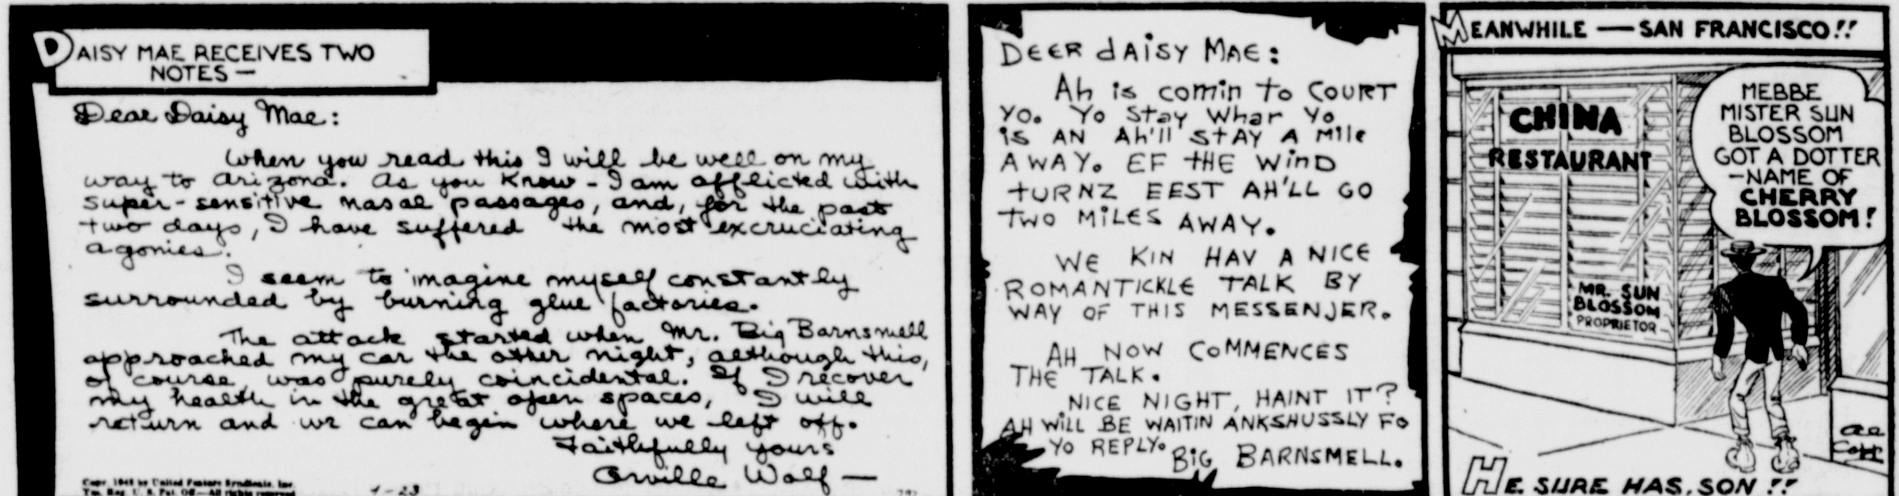 DAISY MAE RECEIVES TWO
NOTES—
Dear Daisy Mae:
When you read this I will be well on my
way to Arizona. As you know - I am afflicted with
super-sensitive nasal passages, and, for the past
two days, I have suffered the most excruciating
agonies.
I seem to imagine myself constantly
surrounded by burning glue factories.
The attack started when Mr. Big Barnsmell
approached my car the other night, although this,
of course, was purely coincidental. If I recover
my health in the great open spaces, I will
return and we can begin where we left off.
Faithfully yours
Orville Wolf—
Copr. 1941 by United Feature Syndicate, Inc.
Tm. Reg. U. S. Pat. Off—All rights reserved
1-23
DEER dAiSY MAE:
Ah is comin to COURT
YO. Yo Stay Whar Yo
is AN Ah'll StAY A Mile
AWAY. EF tHE WiND
tURNZ EEST AH'LL GO
TWO MiLES AWAY.
WE KIN HAV A NICE
ROMANTICKLE TALK BY
WAY OF THIS MESSENJER.
AH NOW COMMENCES
THE TALK.
NICE NIGHT, HAINT IT?
AH WiLL BE WAITIN ANKSHUSSLY FO
YO REPLY.
BiG BARNSMELL.
MEANWHILE — SAN FRANCISCO!!
MEBBE
MISTER SUN
BLOSSOM
GOT A DOTTER
—NAME OF
CHERRY
BLOSSOM!
CHINA
RESTAURANT
MR. SUN
BLOSSOM
PROPRIETOR
AL
CAPP
HE SURE HAS, SON!!